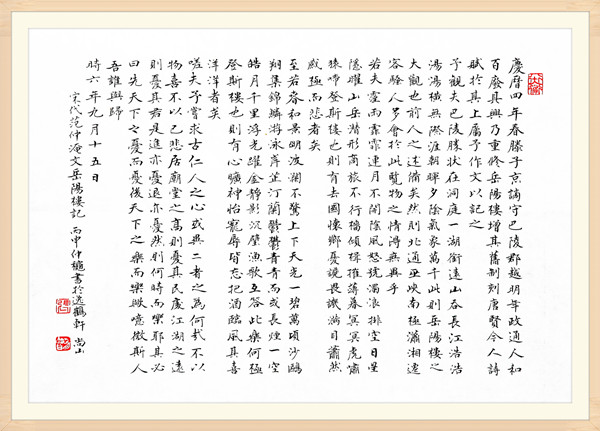 慶曆四年春滕子京謫守巴陵郡越明年政通人和
百廢具興乃重修岳陽樓增其舊制刻唐賢今人詩
賦於其上屬予作文以記之
予觀夫巴陵勝狀在洞庭一湖銜遠山吞長江浩浩
湯湯橫無際涯朝暉夕陰氣象萬千此則岳陽樓之
大觀也前人之述備矣然則北通巫峽南極瀟湘遷
客騷人多會於此覽物之情得無異乎
若夫霪雨霏霏連月不開陰風怒號濁浪排空日星
隱曜山岳潛形商旅不行檣傾楫摧薄暮冥冥虎嘯
猿啼登斯樓也則有去國懷鄉憂讒畏譏滿目蕭然
感極而悲者矣
至若春和景明波瀾不驚上下天光一碧萬頃沙鷗
翔集錦鱗游泳岸芷汀蘭鬱鬱青青而或長煙一空
皓月千里浮光躍金靜影沉璧漁歌互答此樂何極
登斯樓也則有心曠神怡寵辱皆忘把酒臨風其喜
洋洋者矣
嗟夫予嘗求古仁人之心或異二者之為何哉不以
物喜不以己悲居廟堂之高則憂其民處江湖之遠
則憂其君是進亦憂退亦憂然則何時而樂耶其必
曰先天下之憂而憂後天下之樂而樂歟噫微斯人
吾誰與歸
時六年九月十五日
宋代范仲淹文岳陽樓記 丙申仲穐書於逸鶴軒 尚山